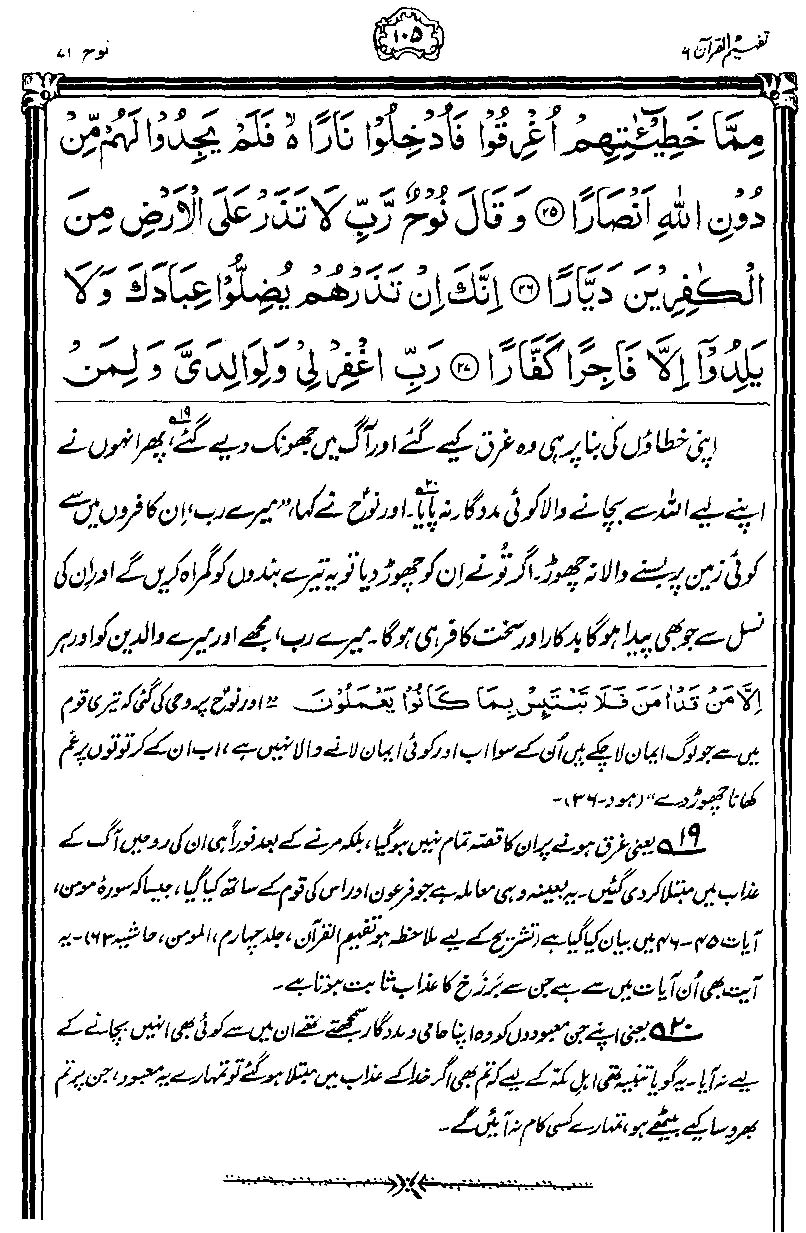 تفہیم القرآن ۶
۱۰۵
نوح ۷۱
مِمَّا خَطِيْٓـٰٔتِهِمْ اُغْرِقُوْا فَاُدْخِلُوْا نَارًا ۙ فَلَمْ يَجِدُوْا لَهُمْ مِّنْ
دُوْنِ اللّٰهِ اَنْصَارًا ﴿۲۵﴾ وَ قَالَ نُوْحٌ رَّبِّ لَا تَذَرْ عَلَى الْاَرْضِ مِنَ
الْكٰفِرِيْنَ دَيَّارًا ﴿۲۶﴾ اِنَّكَ اِنْ تَذَرْهُمْ يُضِلُّوْا عِبَادَكَ وَ لَا
يَلِدُوْٓا اِلَّا فَاجِرًا كَفَّارًا ﴿۲۷﴾ رَبِّ اغْفِرْ لِيْ وَ لِوَالِدَيَّ وَ لِمَنْ
اپنی خطاؤں کی بنا پر ہی وہ غرق کیے گئے اور آگ میں جھونک دیے گئے،۱۹ پھر انہوں نے
اپنے لیے اللہ سے بچانے والا کوئی مددگار نہ پایا۔۲۰ اور نوحؑ نے کہا، ”میرے رب، اِن کافروں میں سے
کوئی زمین پر بسنے والا نہ چھوڑ۔ اگر تُو نے اِن کو چھوڑ دیا تو یہ تیرے بندوں کو گمراہ کریں گے اور اِن کی
نسل سے جو بھی پیدا ہوگا بدکار اور سخت کافر ہی ہوگا۔ میرے رب، مجھے اور میرے والدین کو اور ہر
اِلَّا مَنْ قَدْ اٰمَنَ فَلَا تَبْتَئِسْ بِمَا كَانُوْا يَفْعَلُوْنَ ”اور نوحؑ پر وحی کی گئی کہ تیری قوم
میں سے جو لوگ ایمان لا چکے ہیں اُن کے سوا اب اور کوئی ایمان لانے والا نہیں ہے، اب ان کے کرتوتوں پر غم
کھانا چھوڑ دے“ (ہود۔۳۶)۔
۱۹ یعنی غرق ہونے پر ان کا قصّہ تمام نہیں ہو گیا، بلکہ مرنے کے بعد فوراً ہی ان کی روحیں آگ کے
عذاب میں مبتلا کر دی گئیں۔ یہ بعینہٖ وہی معاملہ ہے جو فرعون اور اس کی قوم کے ساتھ کیا گیا، جیسا کہ سورۂ مومن،
آیات ۴۵-۴۶ میں بیان کیا گیا ہے (تشریح کے لیے ملاحظہ ہو تفہیم القرآن، جلد چہارم، المومن، حاشیہ ۶۳)۔ یہ
آیت بھی اُن آیات میں سے ہے جن سے بَرزَخ کا عذاب ثابت ہوتا ہے۔
۲۰ یعنی اپنے جن معبودوں کو وہ اپنا حامی و مددگار سمجھتے تھے ان میں سے کوئی بھی انہیں بچانے کے
لیے نہ آیا۔ یہ گویا تنبیہ تھی اہلِ مکّہ کے لیے کہ تم بھی اگر خدا کے عذاب میں مبتلا ہو گئے تو تمہارے یہ معبود، جن پر تم
بھروسا کیے بیٹھے ہو، تمہارے کسی کام نہ آئیں گے۔